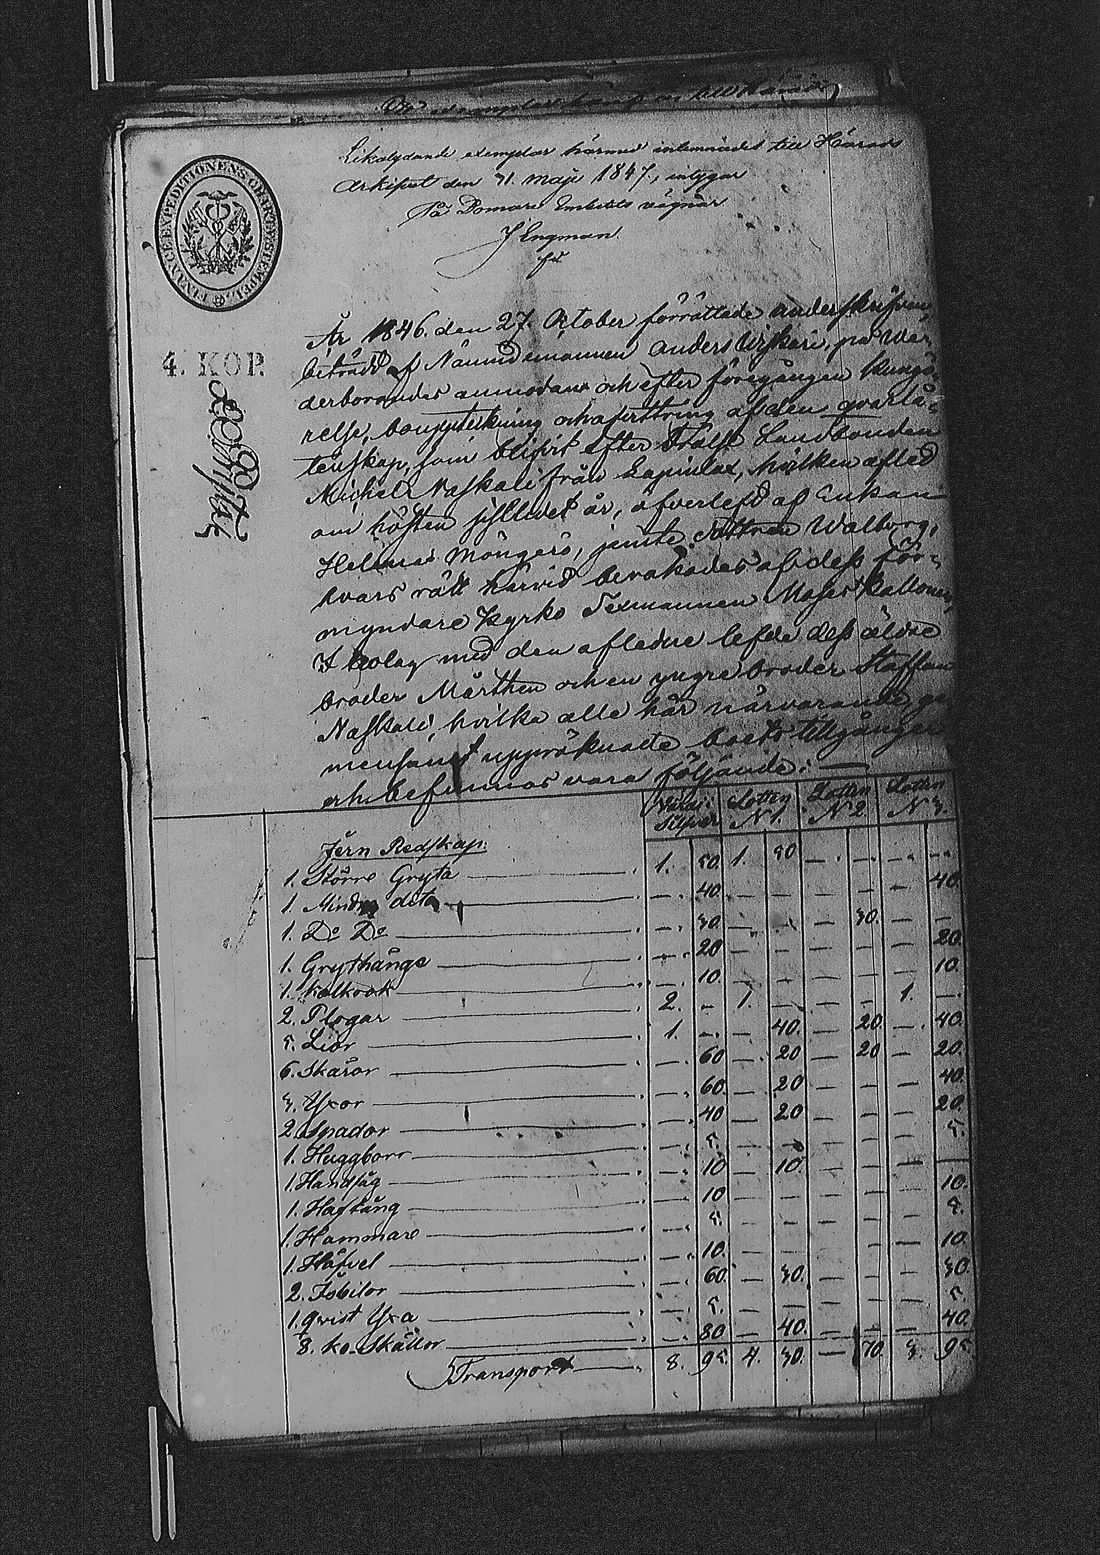 Likalydande exemplar härmed inlemnadt till Härads
Arkivet den 31. Maji 1847, intygar
På Domare Embetets vägnar
J Engman
FINANCE EXPEDITIONENS CHARTÆ STEMPEL
4. KOP.
År 1846. den 27. Oktober förrättade underskrifven,
biträdd af Nämndemannen Anders Wiskari, på wär
derborandes anmodan och efter föregången kungö
relse, bouppteckning och afvittring af den qvarlå-
tenskap, som blifvit efter Frälse Landbonden
Michel Naskali från Lapinlax, hvilken afled
om hösten sistlidet år, öfverlefd af Enkan
Helena Mångers, jemte dottren Walborg,
hvars rätt härvid bevakades af dess för-
myndare Kyrko Sexmannen Moses Kallonen,
I bolag med den aflidne lefde dess äldre
broder Mårthen och en yngre broder Staffan
Naskali, hvilka alle här närvarande ge
mensamt uppräknade boets tillgångar
och befinnes vara följande:
Silfver Lotten N 1. Lotten N 2. Lotten N 3.
Jern Redskap:
1. Större Gryta 1. 50. 1. 50 — . — . — . — .
1. Mindre dito — . 40. — — — — — 40.
1. Do Do — . 30. — . — — 30. — —
1. Grythänge — . 20 — — — — — 20.
1. Kolkrok — . 10. — — — — — 10.
2. Plogar 2. — 1. — — — 1. —
5. Liar 1. — . — 40. — 20 — . 40.
6. Skäror — . 60 — . 20 — 20 — 20.
3. Yxor — . 60. — 20 — — — 40.
2. Spador — . 40 — 20 — — — 20.
1. Huggborr — . 5. — — — — — 5.
1. Handsåg — . 10 — 10. — — — —
1. Hoftång — . 10 — — — — — 10.
1. Hammare — . 5. — — — — — 5.
1. Häfvel — . 10. — — — — — 10.
2. Isbilor — . 60. — 30. — — — 30.
1. qvist Yxa — . 5. — — — — — 5.
8. ko Skällor — . 80 — 40. — — — 40.
Transport 8. 95. 4. 30. — 70. 3. 95